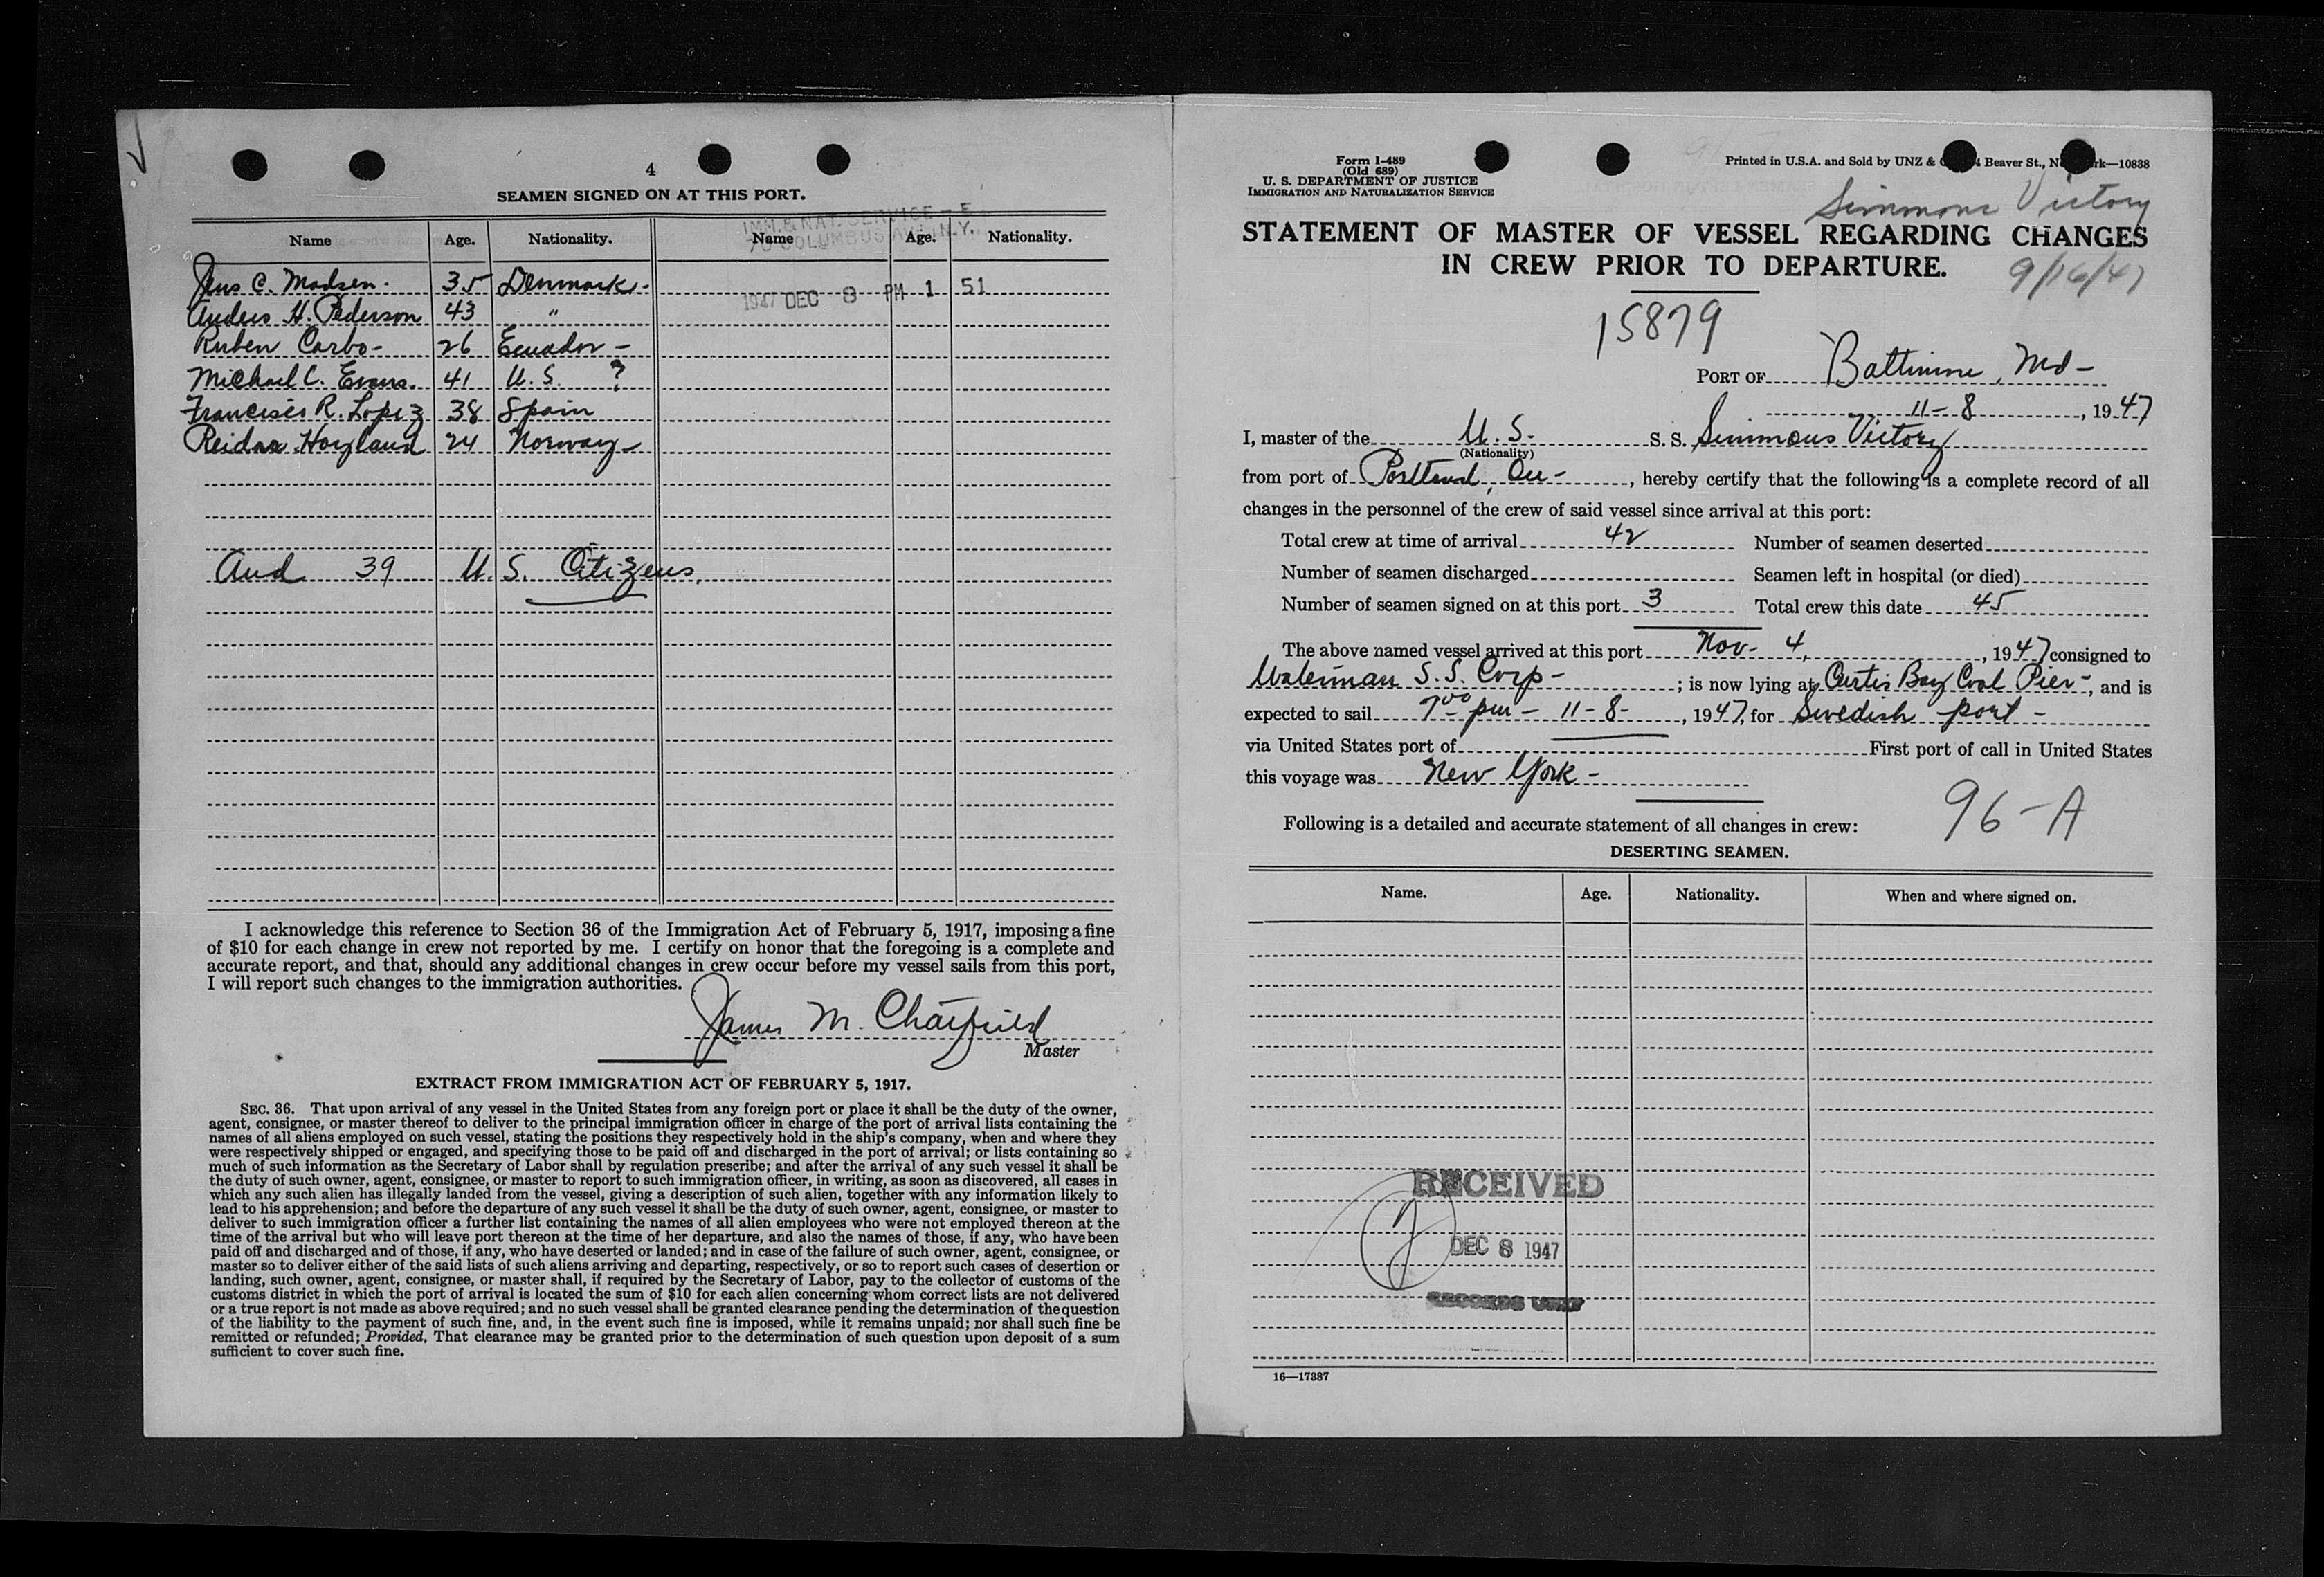 4
SEAMEN SIGNED ON AT THIS PORT.
IMM. & NAT. SERVICE - E
70 COLUMBUS AVE. N.Y.
Name Age. Nationality. Name Age. Nationality.
1947 DEC 8 PM 1 51
Jens C. Madsen. 35 Denmark-
Anders H. Pederson 43 "
Ruben Carbo- 26 Ecuador-
Michael C. Evans. 41 U.S. ?
Francisco R. Lopez 38 Spain
Reidar Hoyland 24 Norway-
And 39 U.S. Citizens.
I acknowledge this reference to Section 36 of the Immigration Act of February 5, 1917, imposing a fine
of $10 for each change in crew not reported by me. I certify on honor that the foregoing is a complete and
accurate report, and that, should any additional changes in crew occur before my vessel sails from this port,
I will report such changes to the immigration authorities.
James M. Chatfield
Master
EXTRACT FROM IMMIGRATION ACT OF FEBRUARY 5, 1917.
SEC. 36. That upon arrival of any vessel in the United States from any foreign port or place it shall be the duty of the owner,
agent, consignee, or master thereof to deliver to the principal immigration officer in charge of the port of arrival lists containing the
names of all aliens employed on such vessel, stating the positions they respectively hold in the ship's company, when and where they
were respectively shipped or engaged, and specifying those to be paid off and discharged in the port of arrival; or lists containing so
much of such information as the Secretary of Labor shall by regulation prescribe; and after the arrival of any such vessel it shall be
the duty of such owner, agent, consignee, or master to report to such immigration officer, in writing, as soon as discovered, all cases in
which any such alien has illegally landed from the vessel, giving a description of such alien, together with any information likely to
lead to his apprehension; and before the departure of any such vessel it shall be the duty of such owner, agent, consignee, or master to
deliver to such immigration officer a further list containing the names of all alien employees who were not employed thereon at the
time of the arrival but who will leave port thereon at the time of her departure, and also the names of those, if any, who have been
paid off and discharged and of those, if any, who have deserted or landed; and in case of the failure of such owner, agent, consignee, or
master so to deliver either of the said lists of such aliens arriving and departing, respectively, or so to report such cases of desertion or
landing, such owner, agent, consignee, or master shall, if required by the Secretary of Labor, pay to the collector of customs of the
customs district in which the port of arrival is located the sum of $10 for each alien concerning whom correct lists are not delivered
or a true report is not made as above required; and no such vessel shall be granted clearance pending the determination of the question
of the liability to the payment of such fine, and, in the event such fine is imposed, while it remains unpaid; nor shall such fine be
remitted or refunded; Provided, That clearance may be granted prior to the determination of such question upon deposit of a sum
sufficient to cover such fine.
Form I-489
(Old 689)
U. S. DEPARTMENT OF JUSTICE
IMMIGRATION AND NATURALIZATION SERVICE
Printed in U.S.A. and Sold by UNZ & Beaver St., N rk—10838
Simmons Victory
STATEMENT OF MASTER OF VESSEL REGARDING CHANGES
IN CREW PRIOR TO DEPARTURE.
9/16/47
15879
PORT OF Baltimore, Md-
11-8, 1947
I, master of the U.S. S. S. Simmons Victory
(Nationality)
from port of Portland, Ore-, hereby certify that the following is a complete record of all
changes in the personnel of the crew of said vessel since arrival at this port:
Total crew at time of arrival 42 Number of seamen deserted
Number of seamen discharged Seamen left in hospital (or died)
Number of seamen signed on at this port 3 Total crew this date 45
The above named vessel arrived at this port Nov- 4, 1947 consigned to
Waterman S.S. Corp- ; is now lying at Curtis Bay Coal Pier-, and is
expected to sail 7⁰⁰ pm- 11-8-, 1947, for Swedish port-
via United States port of First port of call in United States
this voyage was New York-
96-A
Following is a detailed and accurate statement of all changes in crew:
DESERTING SEAMEN.
Name. Age. Nationality. When and where signed on.
RECEIVED
DEC 8 1947
RECORDS UNIT
16—17387